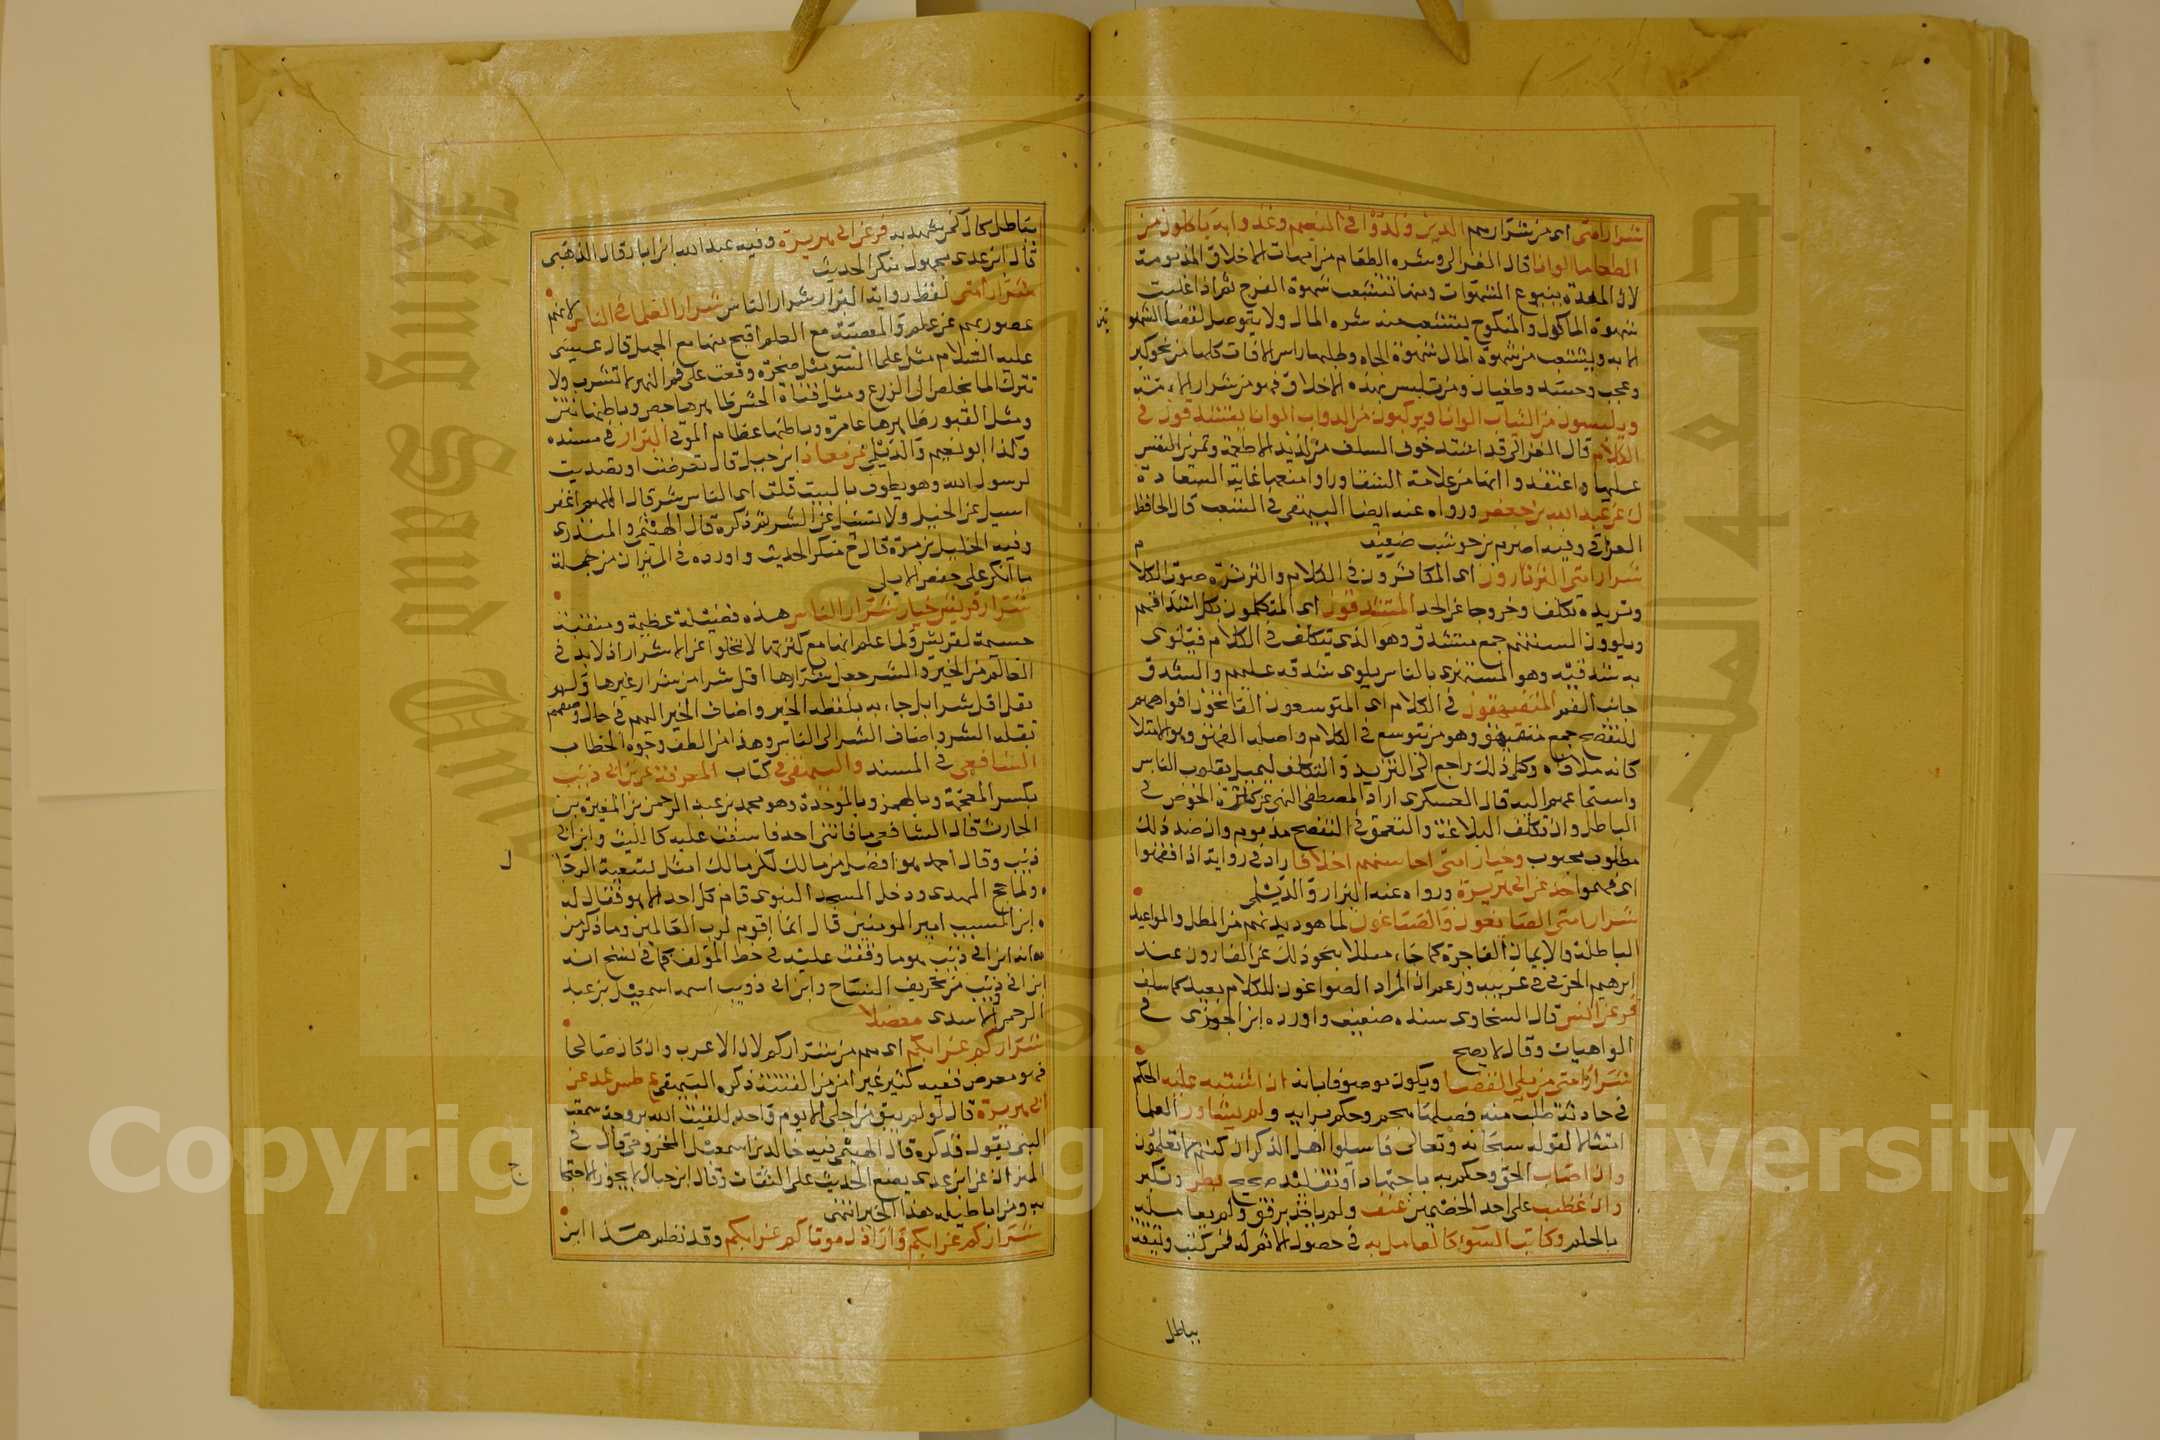 شرار امتي اي من شرارهم الذين ولدوا في النعيم وغذوا به ياكلون من
الطعام الوانا قال الغزالي وشره الطعام من امهات الاخلاق المذمومة
لان المعدة ينبوع الشهوات ومنها تتشعب شهوة الفرج ثم اذا غلبت
شهوة الماكول والمنكوح يتشعب منه شره المال ولا يتوصل لقضا الشهو
تين
الا به ويتشعب من شهوة المال شهوة الجاه وطلبهما راس الافات كلها من نحو كبر
وعجب وحسد وطغيان ومن تلبس بهذه الاخلاق فهو من شرار الامة
ويلبسون من الثياب الوانا ويركبون من الدواب الوانا يتشدقون في
الكلام قال الغزالي قد اشتد خوف السلف من لذيذ الاطعمة وتمرين النفس
عليها واعتقدوا انها من علامة الشقاء وراوا منعها غاية السعادة
ك عن عبد الله بن جعفر ورواه عنه ايضا البيهقي في الشعب قال الحافظ
العراقي وفيه اصرم بن حوشب ضعيف
شرار امتي الثرثارون اي المكاثرون في الكلام والثرثرة صوت الكلام
وترديده تكلفا وخروجا عن الحد المتشدقون اي المتكلمون بكل اشداقهم
ويلوون السنتهم جمع متشدق وهو الذي يتكلف في الكلام فيلوي
به شدقيه وهو المستهزي بالناس يلوي شدقه عليهم والشدق
جانب الفم المتفيهقون في الكلام اي المتوسعون الفاتحون افواههم
للتفصح جمع متفيهق وهو من يتوسع في الكلام واصله الفهق وهو الامتلا
كانه ملا فاه وكل ذلك راجع الى التزيد والتكلف ليميل بقلوب الناس
واسماعهم اليه قال العسكري اراد المصطفى النهي عن كثرة الخوض في
الباطل وان تكلف البلاغة والتعمق في التفصح مذموم وان ضد ذلك
مطلوب محبوب وخيار امتي احاسنهم اخلاقا زاد في رواية اذا فقهوا
اي فهموا خد عن ابي هريرة ورواه عنه البزار والديلمي
شرار امتي الصايغون والصباغون لما هو ديدنهم من المطل والمواعيد
الباطلة والايمان الفاجرة كما جاء معللا بنحو ذلك عن الفاروق عند
ابرهيم الحربي في غريبه وزعم ان المراد الصواغون للكلام بعيد كما سلف
فر عن انس قال السخاوي سنده ضعيف واورده ابن الجوزي في
الواهيات وقال لا يصح
شرار امتي من يلي القضا ويكون موصوفا بانه ان اشتبه عليه الحكم
في حادثة طلب منه فصلها هجم وحكم برايه ولم يشاور العلما
امتثالا لقوله سبحانه وتعالى فاسلوا اهل الذكر ان كنتم لا تعلمون
وان اصاب الحق وحكم به باجتهاد او تقليد صحيح بطر وتكبر
وان غضب على احد الخصمين عنف ولم ياخذ برفق ولم يعامله
بالحلم وكاتب السوء كالعامل به في حصول الاثم له فمن كتب وثيقة
بباطل
بباطل كان كمن شهد به فر عن ابي هريرة وفيه عبد الله بن ابان قال الذهبي
قال ابن عدي مجهول منكر الحديث
شرار امتي لفظ رواية البزار شرار الناس شرار العلما في الناس لانهم
عصوا ربهم عن علم والمعصية مع العلم اقبح منها مع الجهل قال عيسى
عليه السلام مثل علما السوء مثل صخرة وقعت على فم النهر لا تشرب ولا
تترك الما يخلص الى الزرع ومثل قناة الحش ظاهرها جص وباطنها نتن
ومثل القبور ظاهرها عامرة وباطنها عظام الموتى البزار في مسنده
وكذا ابو نعيم والديلمي عن معاذ ابن جبل قال تعرضت او تصديت
لرسول الله وهو يطوف بالبيت قلت اي الناس شر قال اللهم اغفر
اسئل عن الخير ولا تسئل عن الشر ثم ذكره قال الهيثمي والمنذري
وفيه الخليل بن مرة قال خ منكر الحديث واورده في الميزان من جملة
ما انكر على حفص الابلي
شرار قريش خيار شرار الناس هذه فضيلة عظيمة ومنقبة
جسيمة لقريش ولما علم انها مع كثرتها لا تخلوا عن الاشرار اذ لا بد في
العالم من الخير والشر جعل شرارها اقل شرا من شرار غيرها ولم
يقل اقل شرا بل جاء به بلفظ الخير واضاف الخير اليهم في حال وصفهم
بقلة الشر واضاف الشر الى الناس وهذا من الطف وجوه الخطاب
الشافعي في المسند والبيهقي في كتاب المعرفة عن ابن ابي ذئب
بكسر المعجمة وبالهمز وبالموحدة وهو محمد بن عبد الرحمن بن المغيرة بن
الحارث قال الشافعي ما فاتني احد فاسفت عليه كالليث وابن ابي
ذئب وقال احمد هو افضل من مالك لكن مالك امثل تنقية الرجا
ل
ولما حج المهدي ودخل المسجد النبوي قام كل احد الا هو فقال له
ابن المسيب امير المومنين قال انما اقوم لرب العالمين وما ذكر من
انه ابن ابي ذئب هو ما وقفت عليه في خط المؤلف فما في نسخ انه
ابن ابي ذئب من تحريف النساخ وابن ابي ذويب اسمه اسمعيل بن عبد
الرحمن الاسدي معضلا
شراركم عزابكم اي هم من شراركم لان الاعزب وان كان صالحا
فهو معرض نفسه كثير غير امن من الفتنة ذكره البيهقي ع طس عد عن
ابي هريرة قال لو لم يبق من اجلي الا يوم واحد للقيت الله بزوجة سمعت
النبي يقول فذكره قال الهيثمي فيه خالد بن اسمعيل المخزومي قال في
الميزان عن ابن عدي يضع الحديث على الثقات وقال ابن حبان لا يجوز الاحتجا
ج
به ومن اباطيله هذا الخبر انتهى
شراركم عزابكم واراذل موتاكم عزابكم وقد نظم هذا ابن
Copyright © King Saud University
King Saud University
جامعة الملك سعود
1957